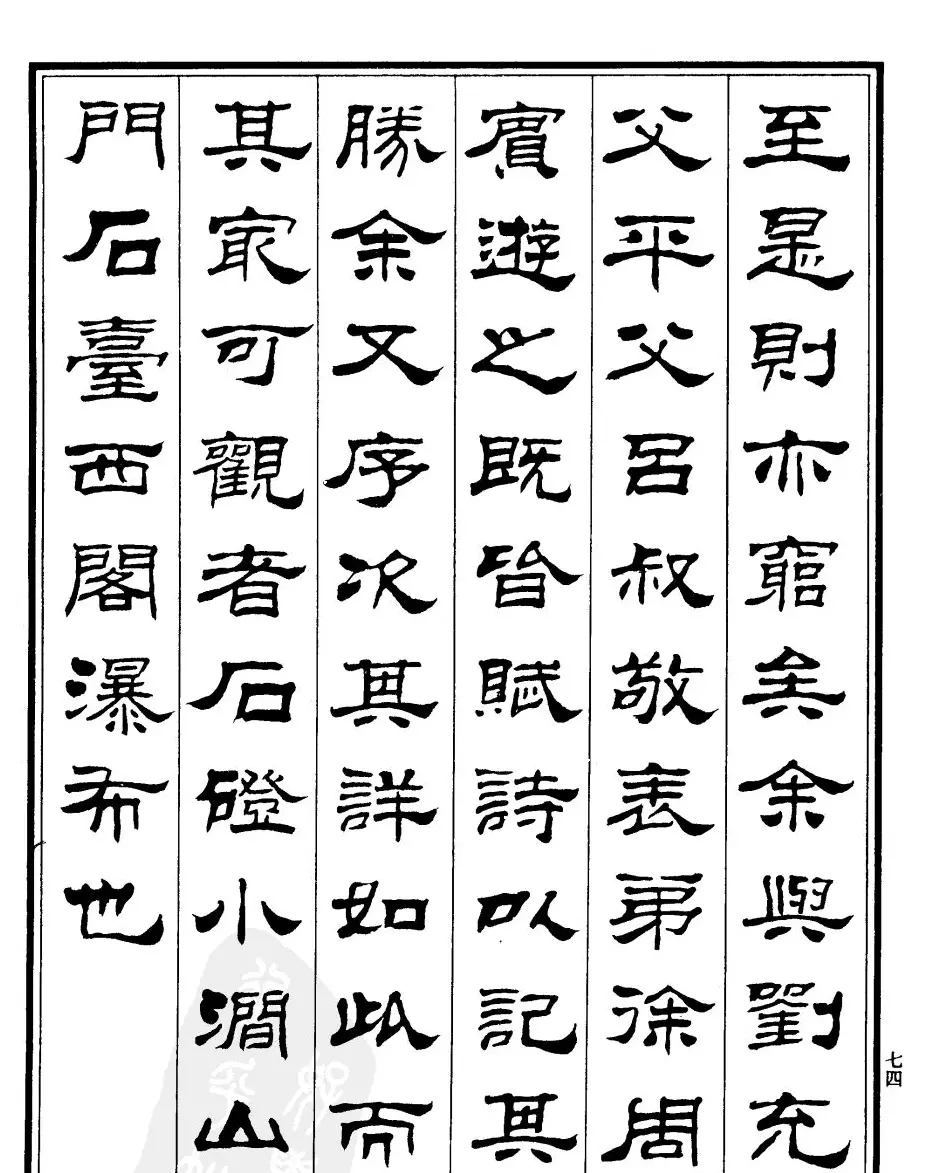 至是則亦窮矣余與劉充
父平父呂叔敬表弟徐周
賓遊之既皆賦詩以記其
勝余又序次其詳如此而
其最可觀者石磴小澗山
門石臺西閣瀑布也
七四